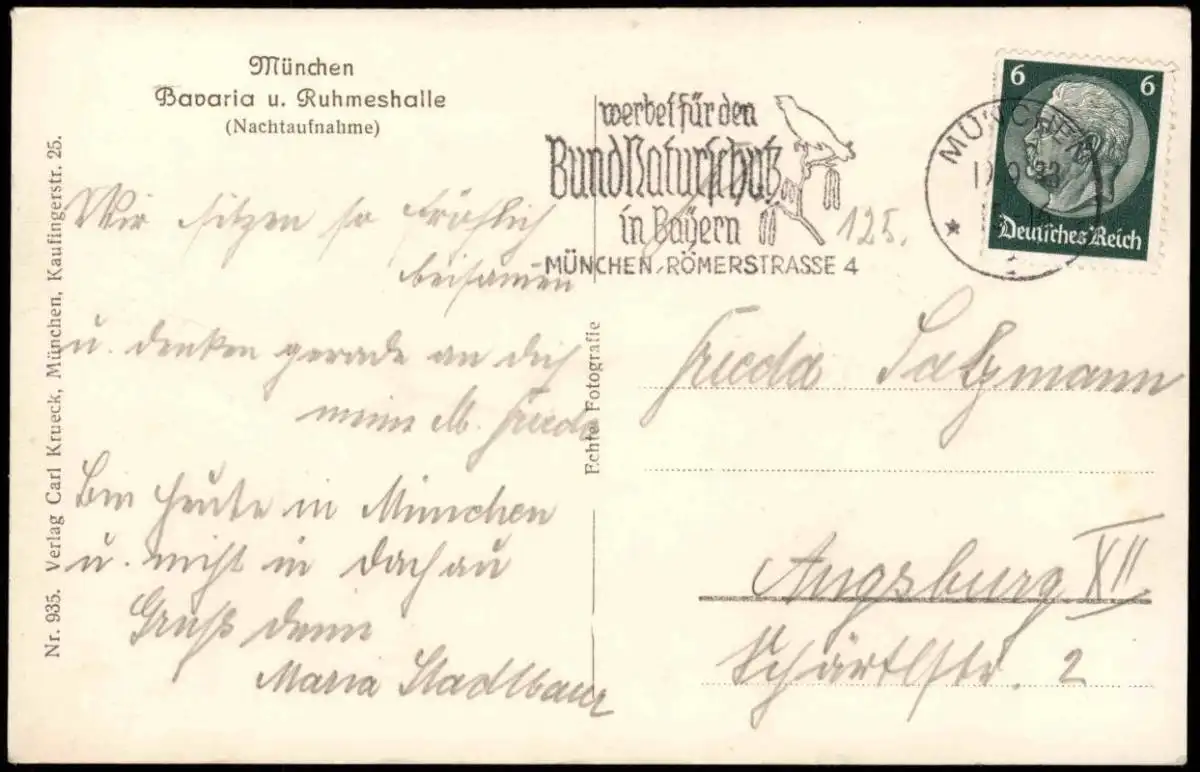 München
Bavaria u. Ruhmeshalle
(Nachtaufnahme)
Nr. 935. Verlag Carl Krueck, München, Kaufingerstr. 25.
werbet für den
Bund Naturschutz
in Bayern
MÜNCHEN, RÖMERSTRASSE 4
MÜNCHEN
6 6
Deutsches Reich
125.
Wir sitzen so fröhlich
beisamen
u. denken gerade an dich
meine lb. Frieda
Bin heute in München
u. nicht in Dachau
Gruß deine
Maria Stadlbaur
Echte Fotografie
Frieda Salzmann
Augsburg XII
Schärtlstr. 2